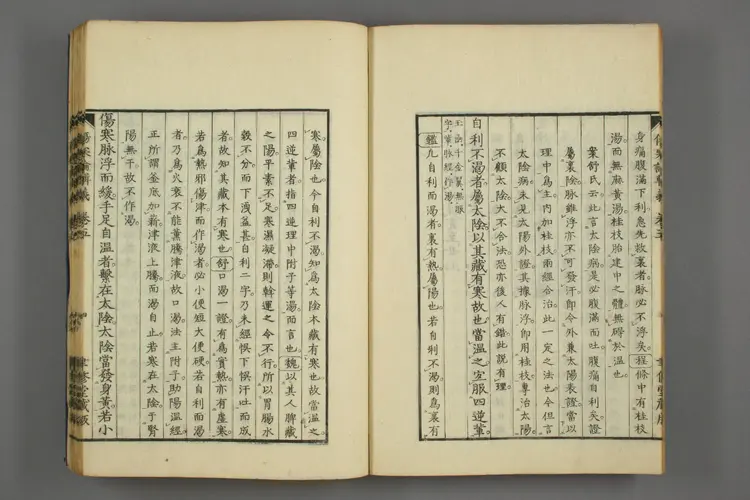 身痛腹滿下利急先救裏者脈必不浮矣程條中有桂枝
湯而無麻黃湯桂枝胎建中之體無礙於溫也
案舒氏云此言太陰病是必腹滿而吐腹痛自利矣證
屬裏陰脈雖浮亦不可發汗即令外兼太陽表證當以
理中爲主內加桂枝兩經合治此一定之法也今但言
太陰病未見太陽外證其據脈浮即用桂枝專治太陽
不顧太陰大不合法恐亦後人有錯此說有理
自利不渴者屬太陰以其藏有寒故也當溫之宜服四逆輩
鑑凡自利而渴者裏有熱屬陽也若自利不渴則爲裏有
寒屬陰也今自利不渴知爲太陰本藏有寒也故當溫之
四逆輩者指四逆理中附子等湯而言也魏以其人脾藏
之陽平素不足寒濕凝滯則斡運之令不行所以胃腸水
穀不分而下洩益甚自利二字乃未經誤下誤汗吐而成
者故知其藏本有寒也舒口渴一證有爲實熱亦有虛寒
若爲熱邪傷津而作渴者必小便短大便硬若自利而渴
者乃爲火衰不能薰騰津液故口渴法主附子助陽溫經
正所謂釜底加薪津液上騰而渴自止若寒在太陰于腎
陽無干故不作渴
傷寒脈浮而緩手足自溫者繫在太陰太陰當發身黃若小